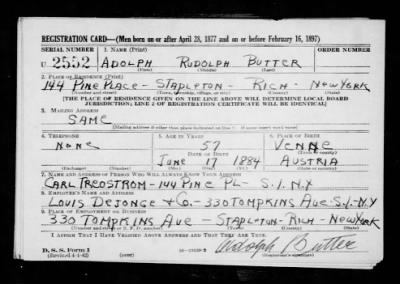 REGISTRATION CARD—(Men born on or after April 28, 1877 and on or before February 16, 1897)
SERIAL NUMBER 1. NAME (Print) ORDER NUMBER
U 2552 ADOLPH RUDOLPH BUTTER
(First) (Middle) (Last)
2. PLACE OF RESIDENCE (Print)
144 PINE PLACE - STAPLETON - RICH - NEW YORK
(Number and street) (Town, township, village, or city) (County) (State)
[THE PLACE OF RESIDENCE GIVEN ON THE LINE ABOVE WILL DETERMINE LOCAL BOARD
JURISDICTION; LINE 2 OF REGISTRATION CERTIFICATE WILL BE IDENTICAL]
3. MAILING ADDRESS
SAME
[Mailing address if other than place indicated on line 2. If same insert word same]
4. TELEPHONE 5. AGE IN YEARS 6. PLACE OF BIRTH
NONE 57 VENNE
DATE OF BIRTH (Town or county)
JUNE 17 1884 AUSTRIA
(Exchange) (Number) (Mo.) (Day) (Yr.) (State or country)
7. NAME AND ADDRESS OF PERSON WHO WILL ALWAYS KNOW YOUR ADDRESS
CARL TREDSTROM - 144 PINE PL - S.I. N.Y
8. EMPLOYER'S NAME AND ADDRESS
LOUIS DEJONGE & CO. - 330 TOMPKINS AVE S.I. - N.Y
9. PLACE OF EMPLOYMENT OR BUSINESS
330 TOMPKINS AVE - STAPLETON - RICH - NEW YORK
(Number and street or R. F. D. number) (Town) (County) (State)
I AFFIRM THAT I HAVE VERIFIED ABOVE ANSWERS AND THAT THEY ARE TRUE.
D. S. S. Form 1
(Revised 4-1-42) Adolph Butter